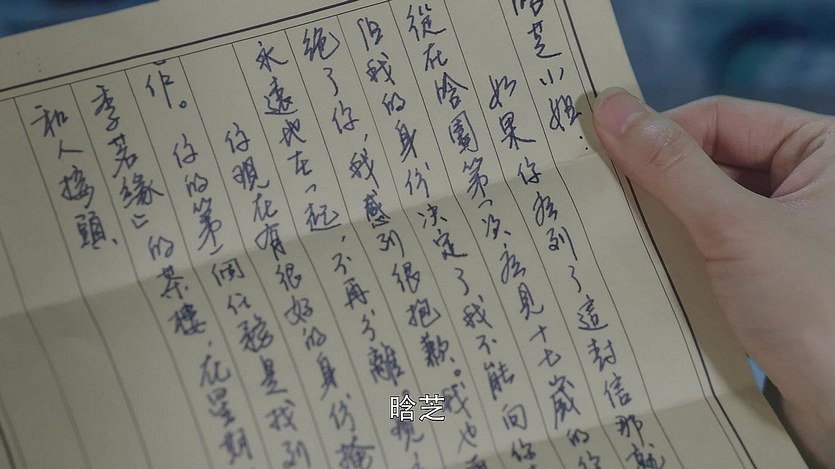 晗芝小姐：
如果你看到了這封信那就
從在晗園第一次看見十七歲的你
但我的身份決定了我不能向你
絕了你，我感到很抱歉。我也
永遠地在一起，不再分離。現
你現在有很好的身份掩
作。你的第一個任務是找到
若緣」的茶樓，在星期
和人接頭、
晗芝